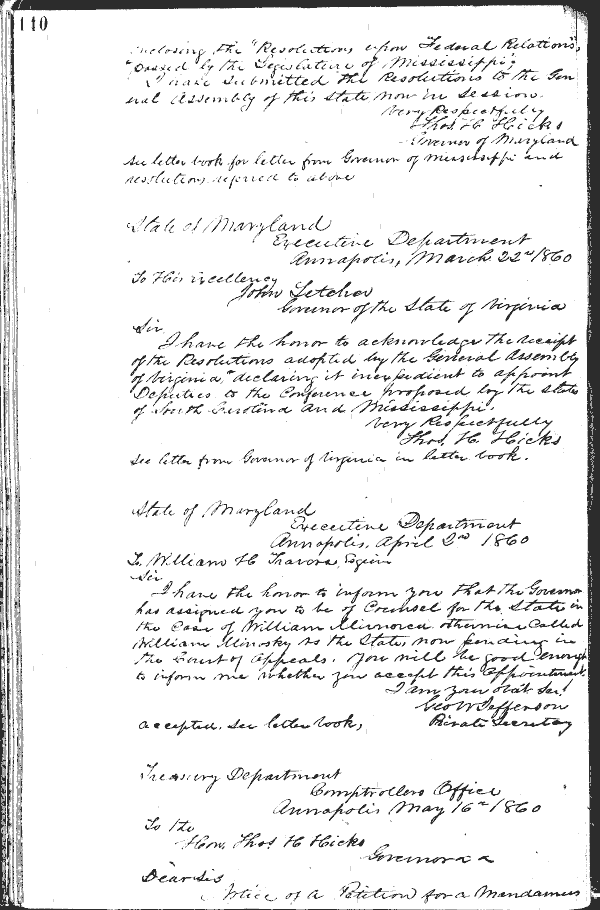 110
enclosing the "Resolutions upon Federal Relations,
"passed by the Legislature of Mississippi;
I have submitted the Resolutions to the Gen
eral Assembly of this State now in session.
Very Respectfully
Thos. H. Hicks
Governor of Maryland
see letter book for letter from Governor of Mississippi and
resolutions referred to above
State of Maryland
Executive Department
Annapolis, March 22nd 1860
To His Excellency
John Letcher
Governor of the State of Virginia
Sir
I have the honor to acknowledge the receipt
of the Resolutions adopted by the General Assembly
of Virginia, "declaring it inexpedient to appoint
Deputies to the Conference proposed by the States
of South Carolina and Mississippi.
Very Respectfully
Thos. H. Hicks
see letter from Governor of Virginia in letter book.
State of Maryland
Executive Department
Annapolis, April 2nd 1860
To William H Travers, Esquire
Sir
I have the honor to inform you that the Governor
has assigned you to be of Counsel for the State in
the Case of William otherwise Called
William vs the State, now pending in
the Court of Appeals. You will be good enough
to inform me whether you accept this appointment.
I am your obdt. Ser.
Geo W Jefferson
accepted. see letter book, Private Secretary
Treasury Department
Comptrollers Office
Annapolis May 16th 1860
To the
Hon. Thos H Hicks
Governor
Dear Sir
Notice of a Petition for a Mandamus